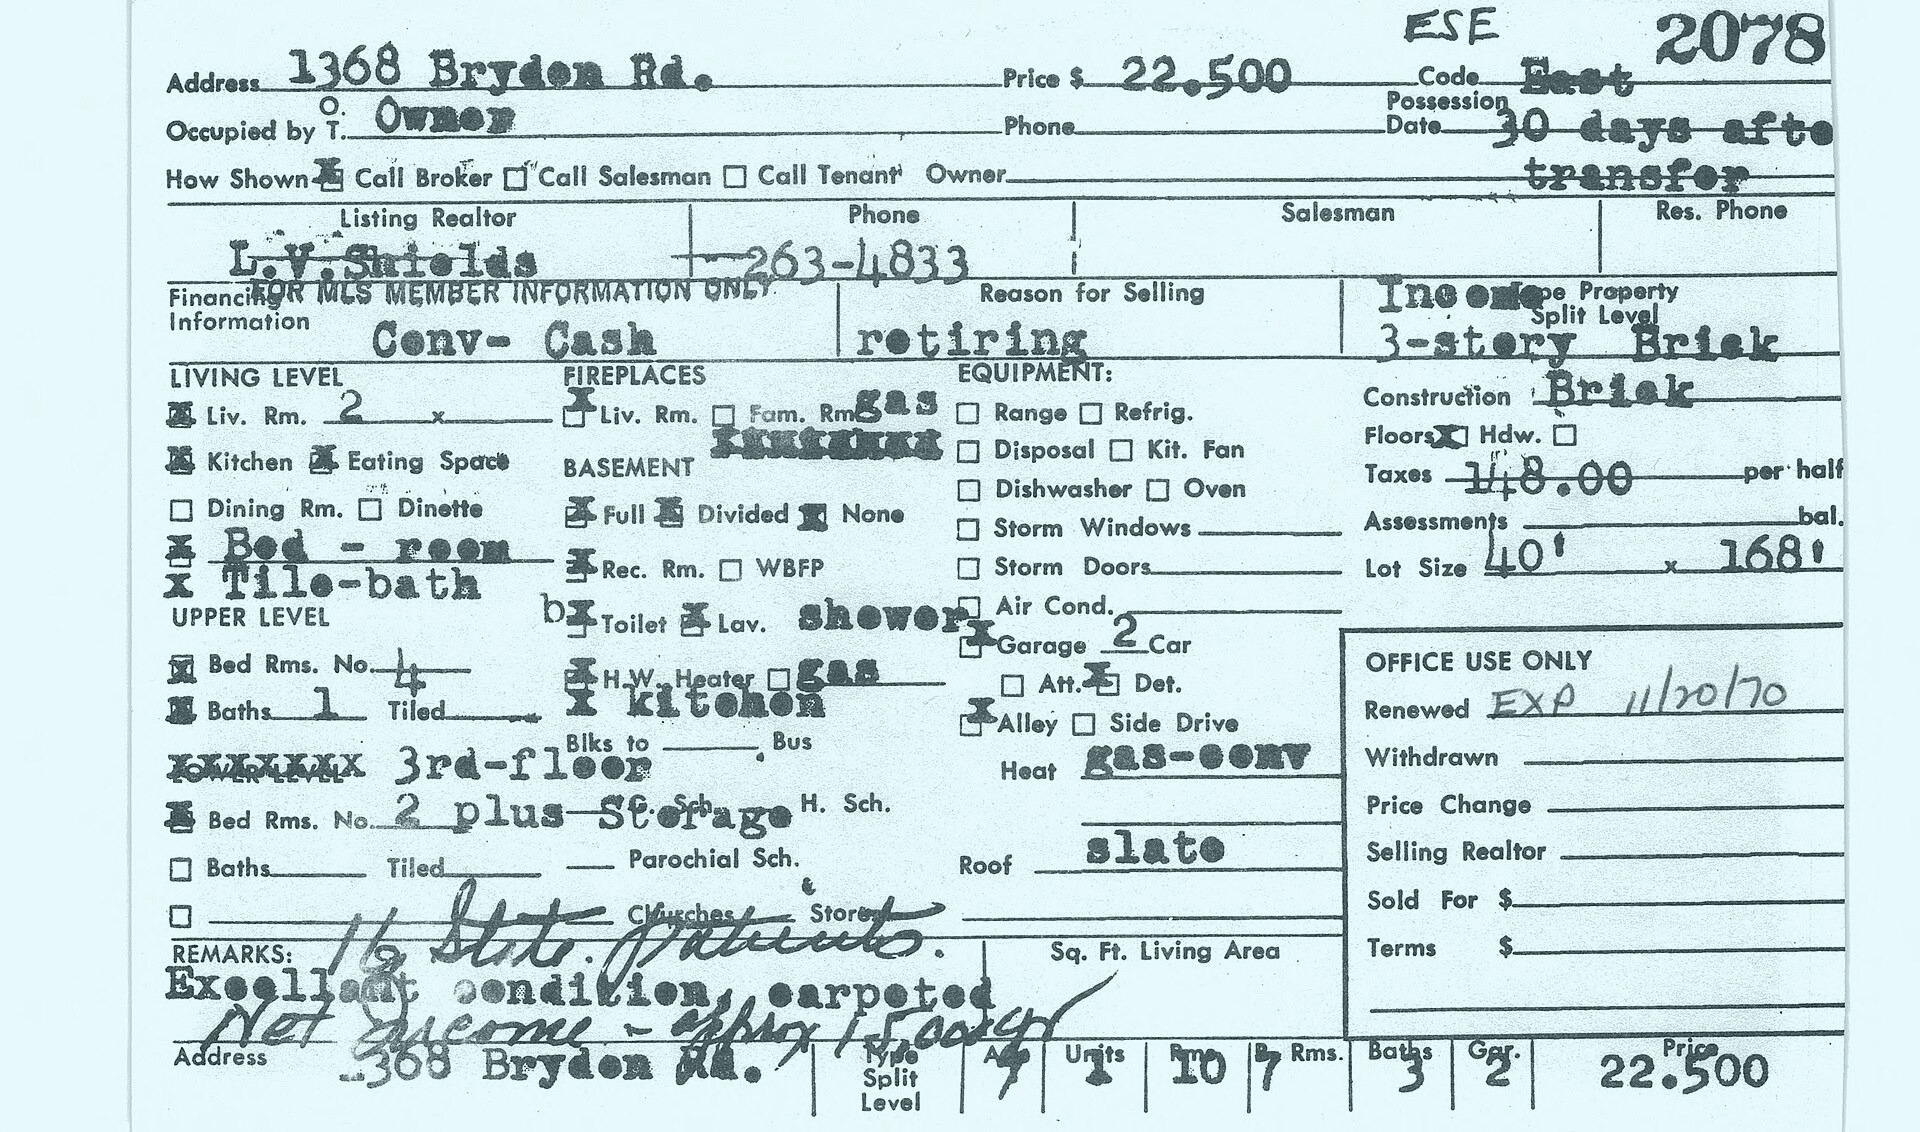 ESE 2078
Address 1368 Bryden Rd. Price $ 22.500 Code East
Occupied by O. T. Owner Phone Possession Date 30 days afte
transfer
How Shown X Call Broker Call Salesman Call Tenant Owner
Listing Realtor Phone Salesman Res. Phone
L.V.Shields 263-4833
FOR MLS MEMBER INFORMATION ONLY
Financing Information Conv- Cash
Reason for Selling retiring
Income Type Property
Split Level
3-story Brick
LIVING LEVEL
X Liv. Rm. 2 x
X Kitchen X Eating Space
Dining Rm. Dinette
X Bed - room
X Tile-bath
UPPER LEVEL
X Bed Rms. No. 4
X Baths 1 Tiled
XXXXXXX 3rd-floor
X Bed Rms. No. 2 plus Storage
Baths Tiled
FIREPLACES
X Liv. Rm. Fam. Rm. gas
BASEMENT
X Full X Divided X None
X Rec. Rm. WBFP
b X Toilet X Lav. shower
X H.W. Heater gas
X kitchen
Blks to Bus
G. Sch. H. Sch.
Parochial Sch.
Churches Stores
EQUIPMENT:
Range Refrig.
Disposal Kit. Fan
Dishwasher Oven
Storm Windows
Storm Doors
Air Cond.
X Garage 2 Car
Att. X Det.
X Alley Side Drive
Heat gas-conv
Roof slate
Construction Brick
Floors X Hdw.
Taxes 148.00 per half
Assessments bal.
Lot Size 40' x 168'
OFFICE USE ONLY
Renewed EXP 11/20/70
Withdrawn
Price Change
Selling Realtor
Sold For $
Terms $
REMARKS: 16 State. Patients.
Sq. Ft. Living Area
Excellent condition, carpeted
Net income - approx 15,000 yr
Address 1368 Bryden Rd.
Type Split Level
Units 1
Rms 10
B. Rms. 7
Baths 3
Gar. 2
Price 22.500